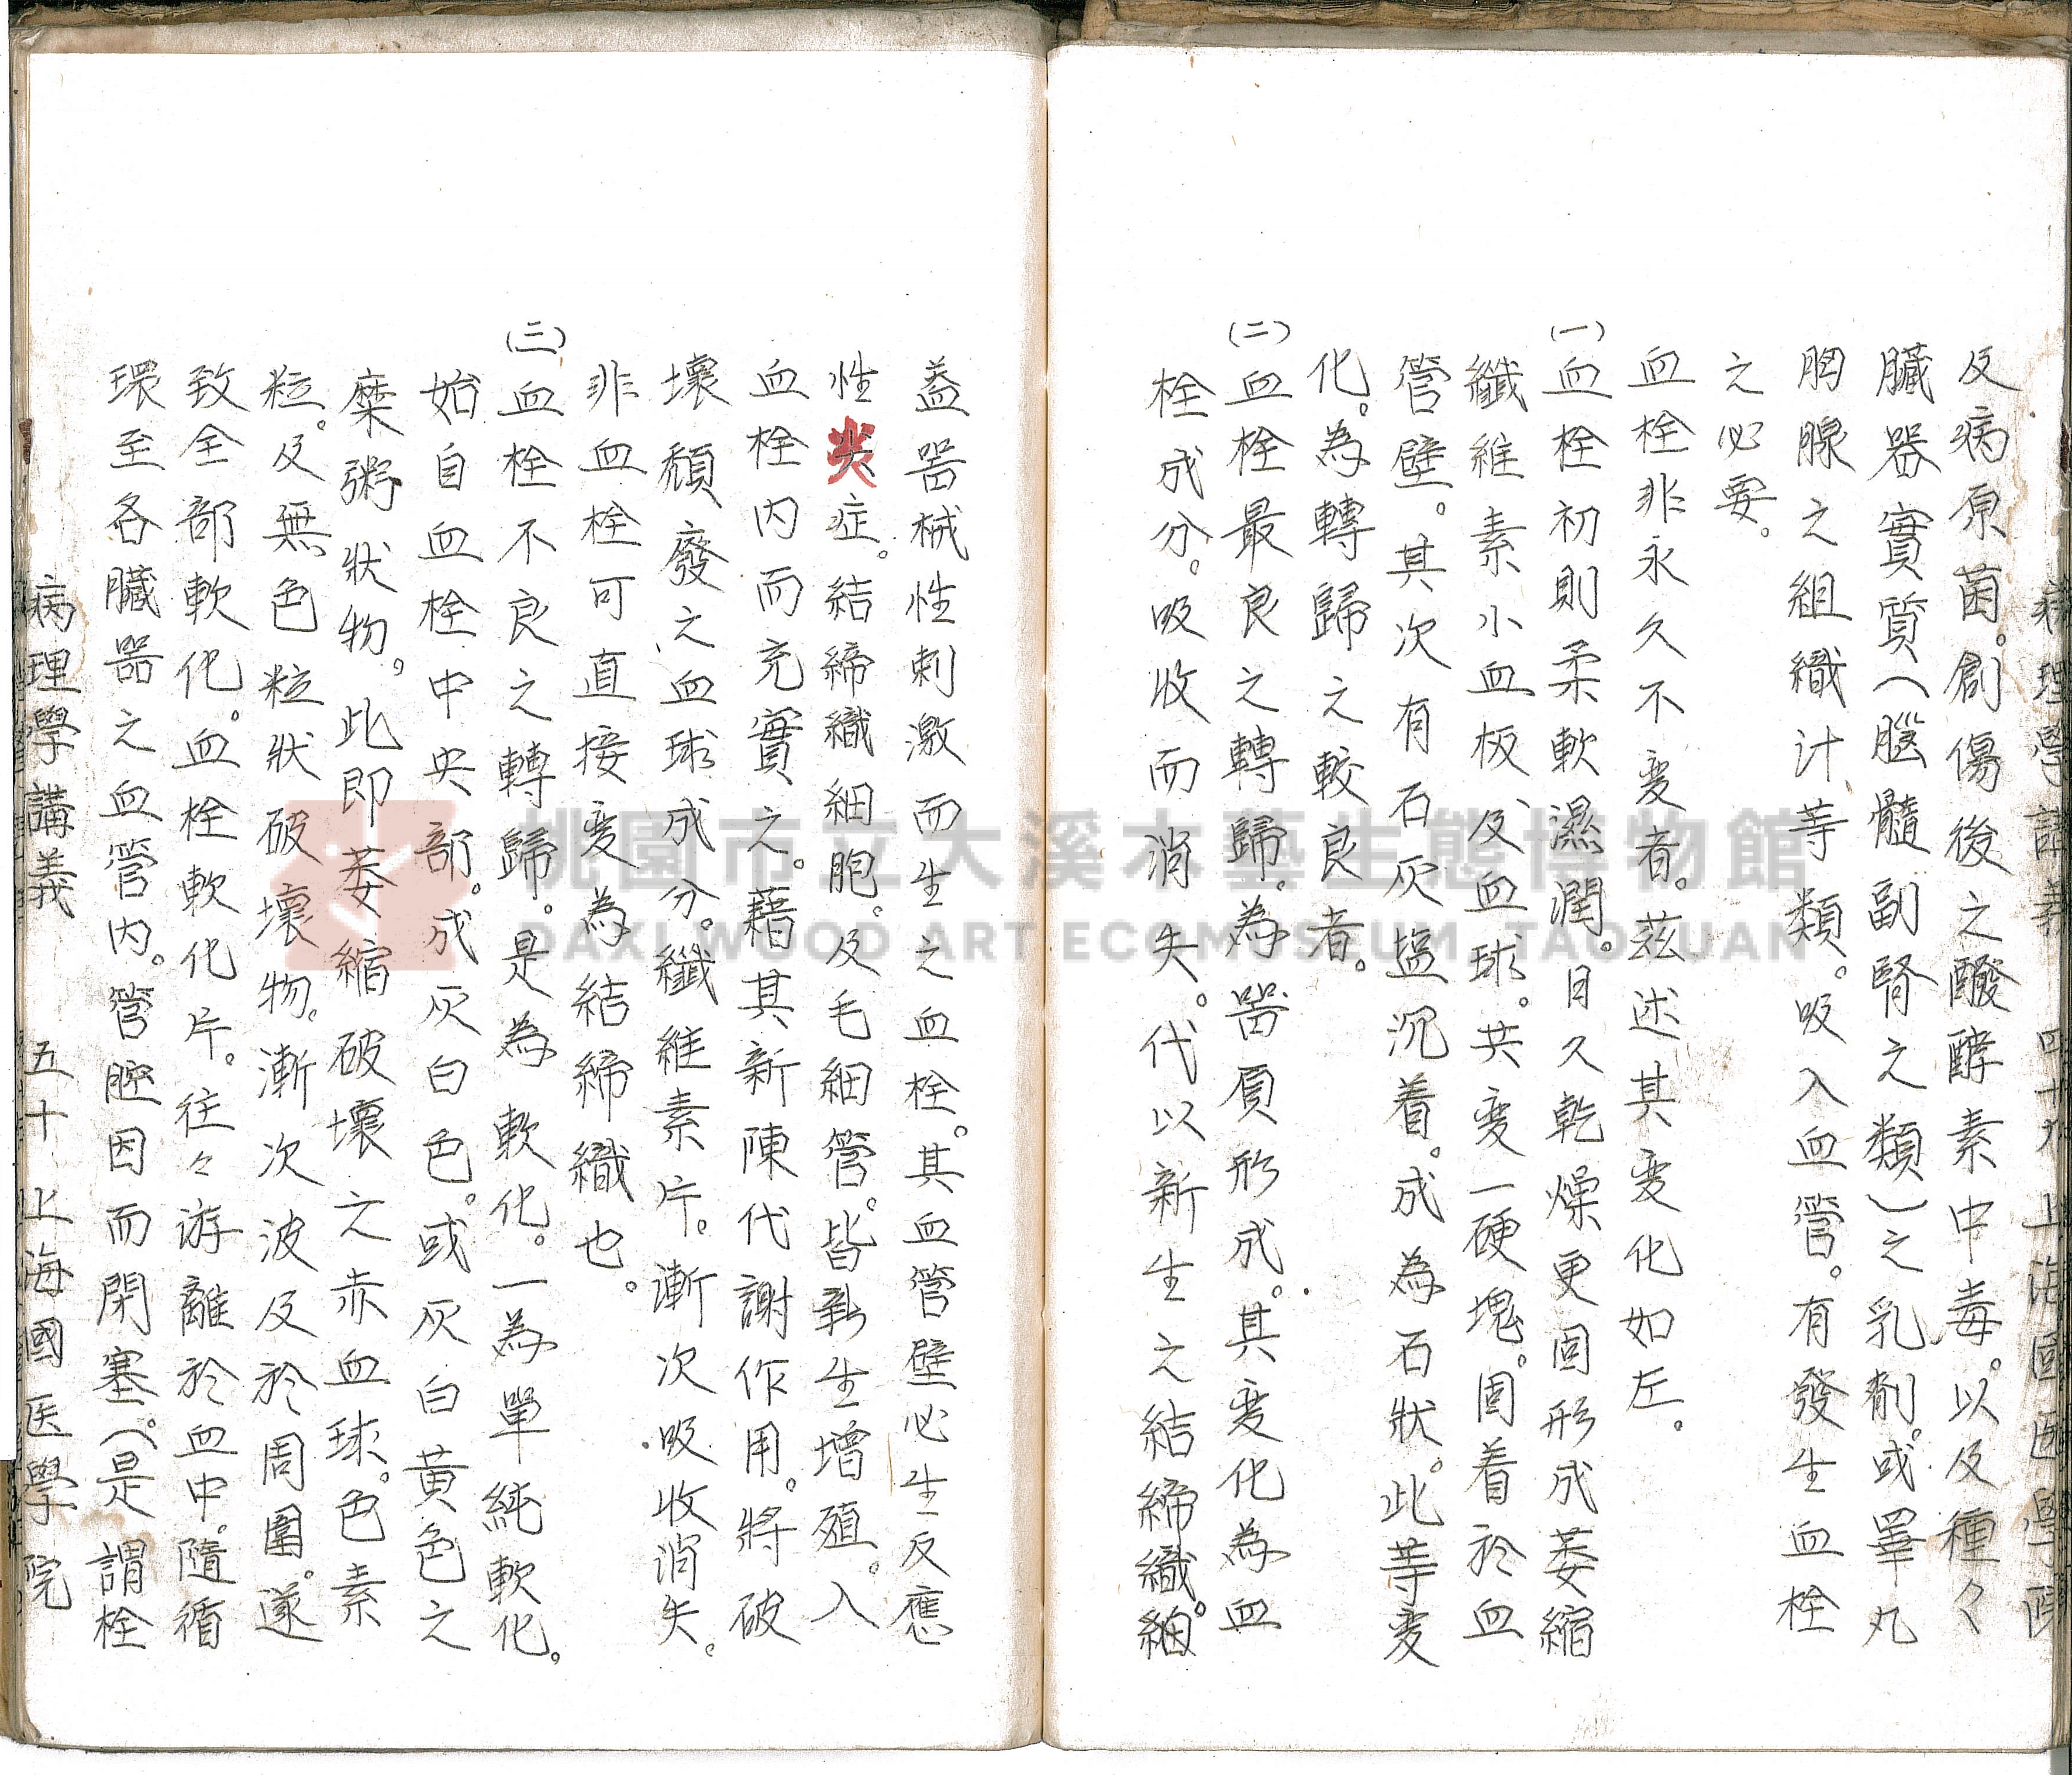 病理學講義 四十九 上海國醫學院
及病原菌。創傷後之醱酵素中毒。以及種々
臟器實質(腦髓副腎之類)之乳劑。或睪丸
胸腺之組織汁等類。吸入血管。有發生血栓
之必要。
血栓非永久不变者。茲述其变化如左。
(一)血栓初則柔軟濕潤。日久乾燥更固形成萎縮
纖維素小血板、及血球。共变一硬塊。固着於血
管壁。其次有石灰塩沉着。成為石狀。此等变
化。為轉歸之較良者。
(二)血栓最良之轉歸。為噐質形成。其变化為血
栓成分。吸收而消失。代以新生之結締織。細
盖噐械性刺激而生之血栓。其血管壁必生反應
性炎症。結締織細胞。及毛細管。皆新生增殖。入
血栓内而充實之。藉其新陳代謝作用。將破
壞頹廢之血球成分。纖維素片。漸次吸收消失。
非血栓可直接变為結締織也。
(三)血栓不良之轉歸。是為軟化。一為單純軟化。
始自血栓中央部。成灰白色。或灰白黃色之
糜粥狀物。此即萎縮破壞之赤血球。色素
粒。及無色粒狀破壞物。漸次波及於周圍。遂
致全部軟化。血栓軟化片。往々游離於血中。隨循
環至各臟噐之血管内。管腔因而閉塞。(是謂栓
病理學講義 五十 上海國医學院
桃園市立大溪木藝生態博物館
DAXI WOOD ART ECOMUSEUM, TAOYUAN